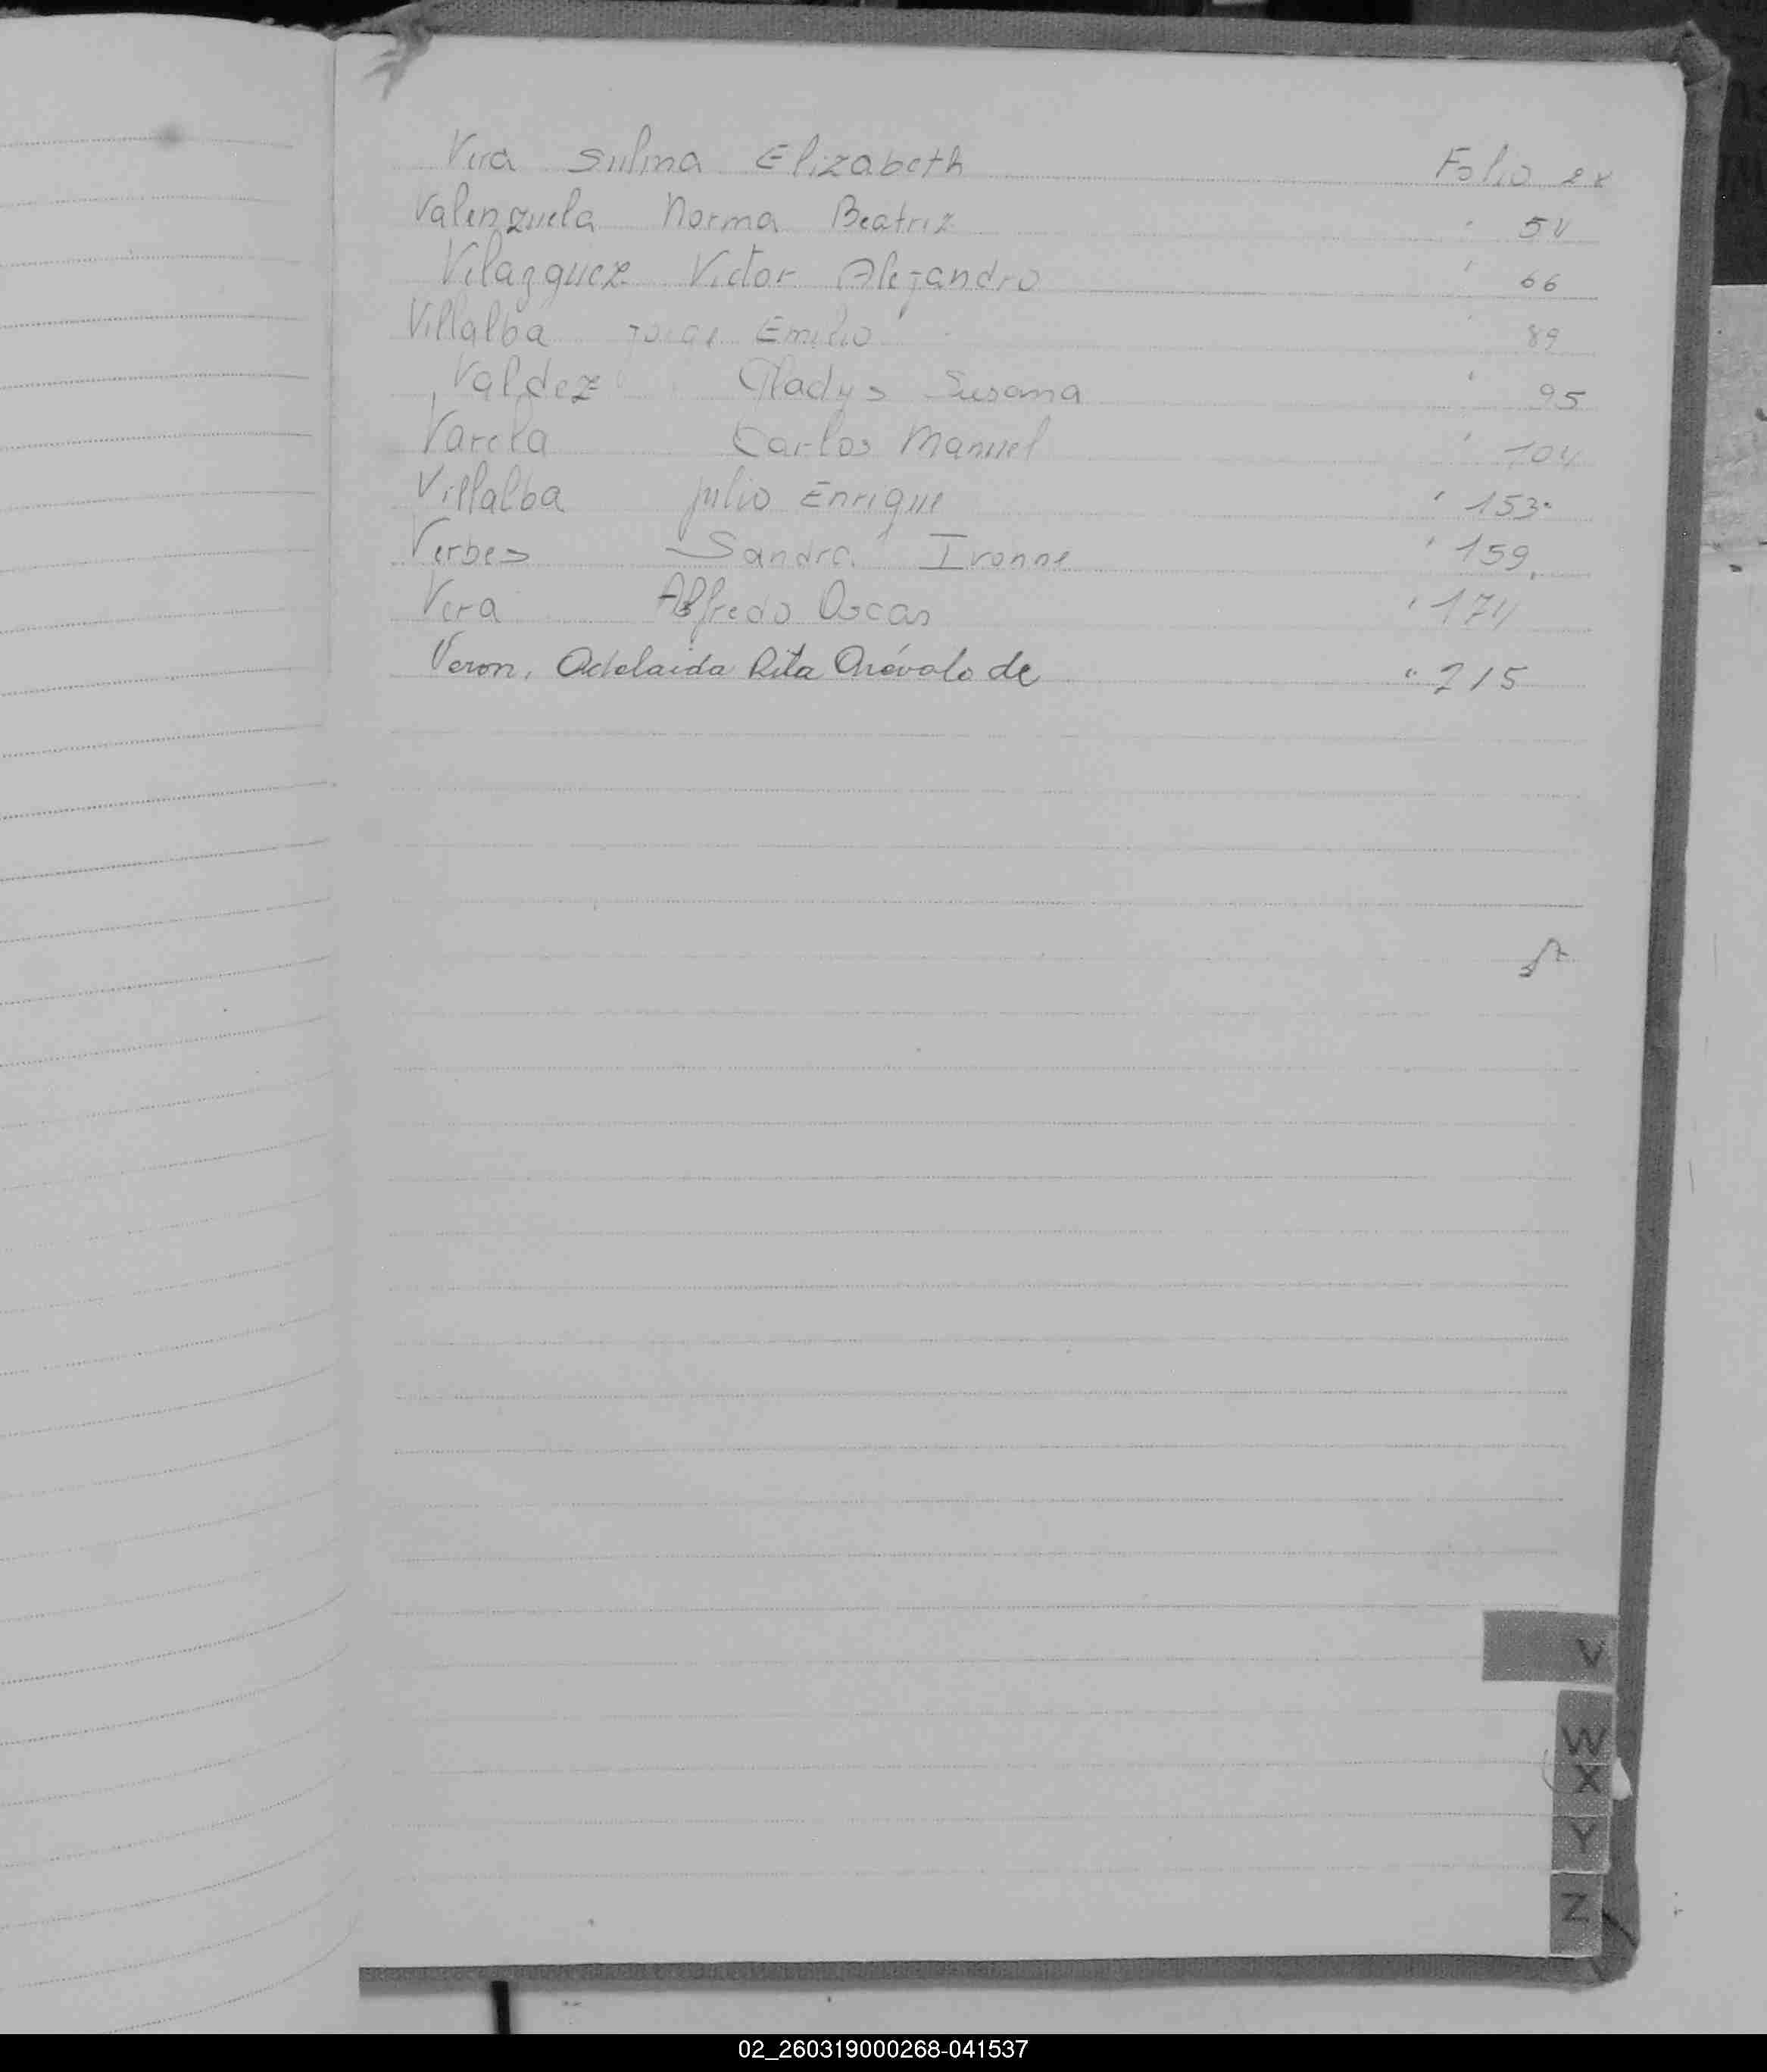 Vera Sulma Elizabeth Folio
Valenzuela Norma Beatriz " 54
Velazquez Victor Alejandro " 66
Villalba Jorge Emilio " 89
Valdez Gladys Susana " 95
Varela Carlos Manuel " 104
Villalba Julio Enrique " 153
Verbes Sandra Ivonne " 159
Vera Alfredo Oscar " 174
Veron, Adelaida Rita Arévalo de " 215
V
W
X
Y
Z
02_260319000268-041537